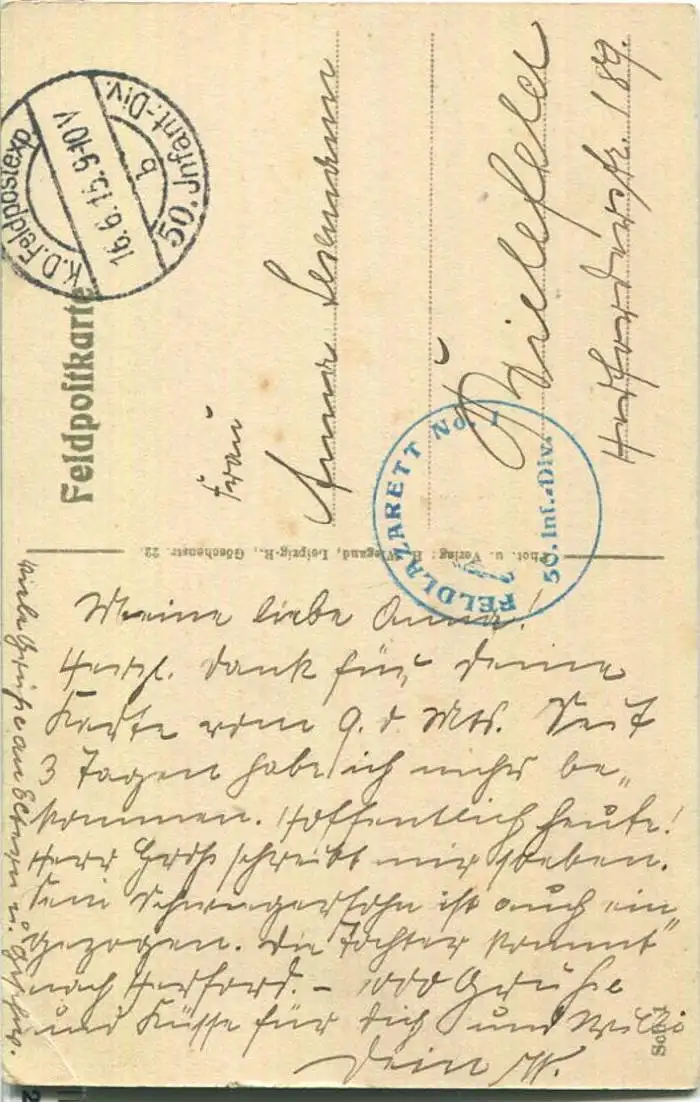 Feldpostkarte
K.D. Feldpostexp.
16.6.15. 9-10 V
50. Infant.-Div.
b
Frau
Anna Lesemann
Bielefeld
Herforderstr. 189.
FELDLAZARETT No. 1
50. Inf.-Div.
Phot. u. Verlag: H. Wiegand, Leipzig-R., Göschenstr. 22.
Meine liebe Anna!
Herzl. Dank für Deine
Karte vom 9. d. Mts. Seit
3 Tagen habe ich nichts be„
kommen. Hoffentlich heute!
Herr Groß schreibt mir soeben.
Sein Schwiegersohn ist auch ein„
gezogen. Die Tochter kommt
nach Herford. – 1000 Grüße
und Küsse für Dich und Willi
Dein W.
Viele Grüße an Eltern u. Geschw.